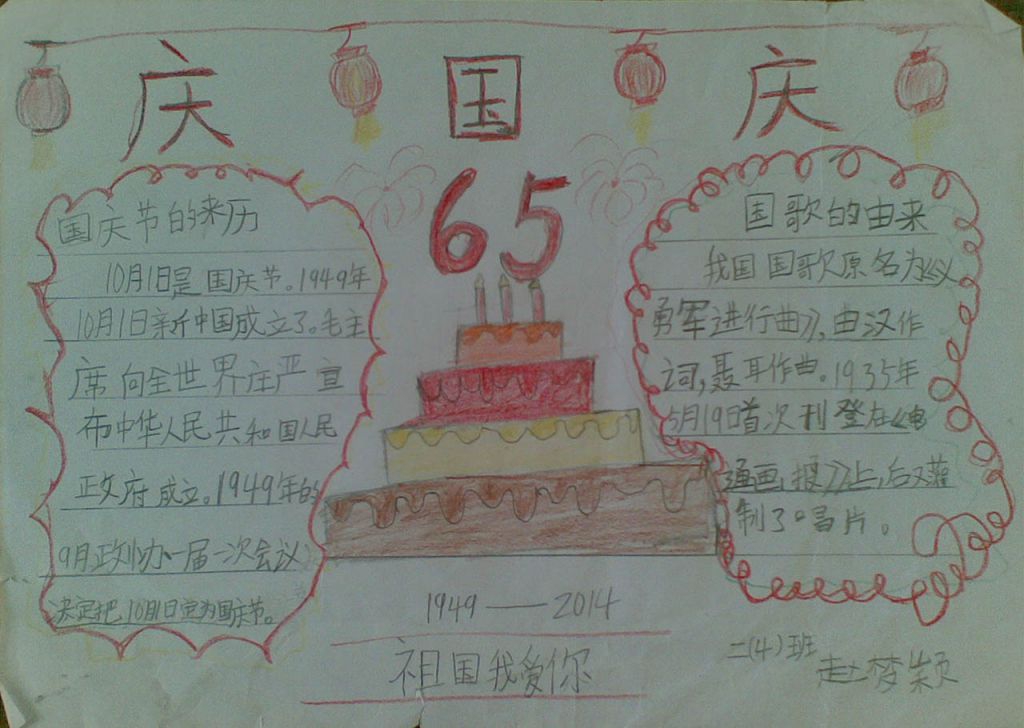 庆 国 庆
65
国庆节的来历
10月1日是国庆节。1949年
10月1日新中国成立了。毛主
席向全世界庄严宣
布中华人民共和国人民
政府成立。1949年的
9月政协一届一次会议
决定把10月1日定为国庆节。
国歌的由来
我国国歌原名为《义
勇军进行曲》,由汉作
词,聂耳作曲。1935年
5月19日首次刊登在《电
通画报》上,后又灌
制了唱片。
1949——2014
祖国我爱你
二(4)班
赵梦颖